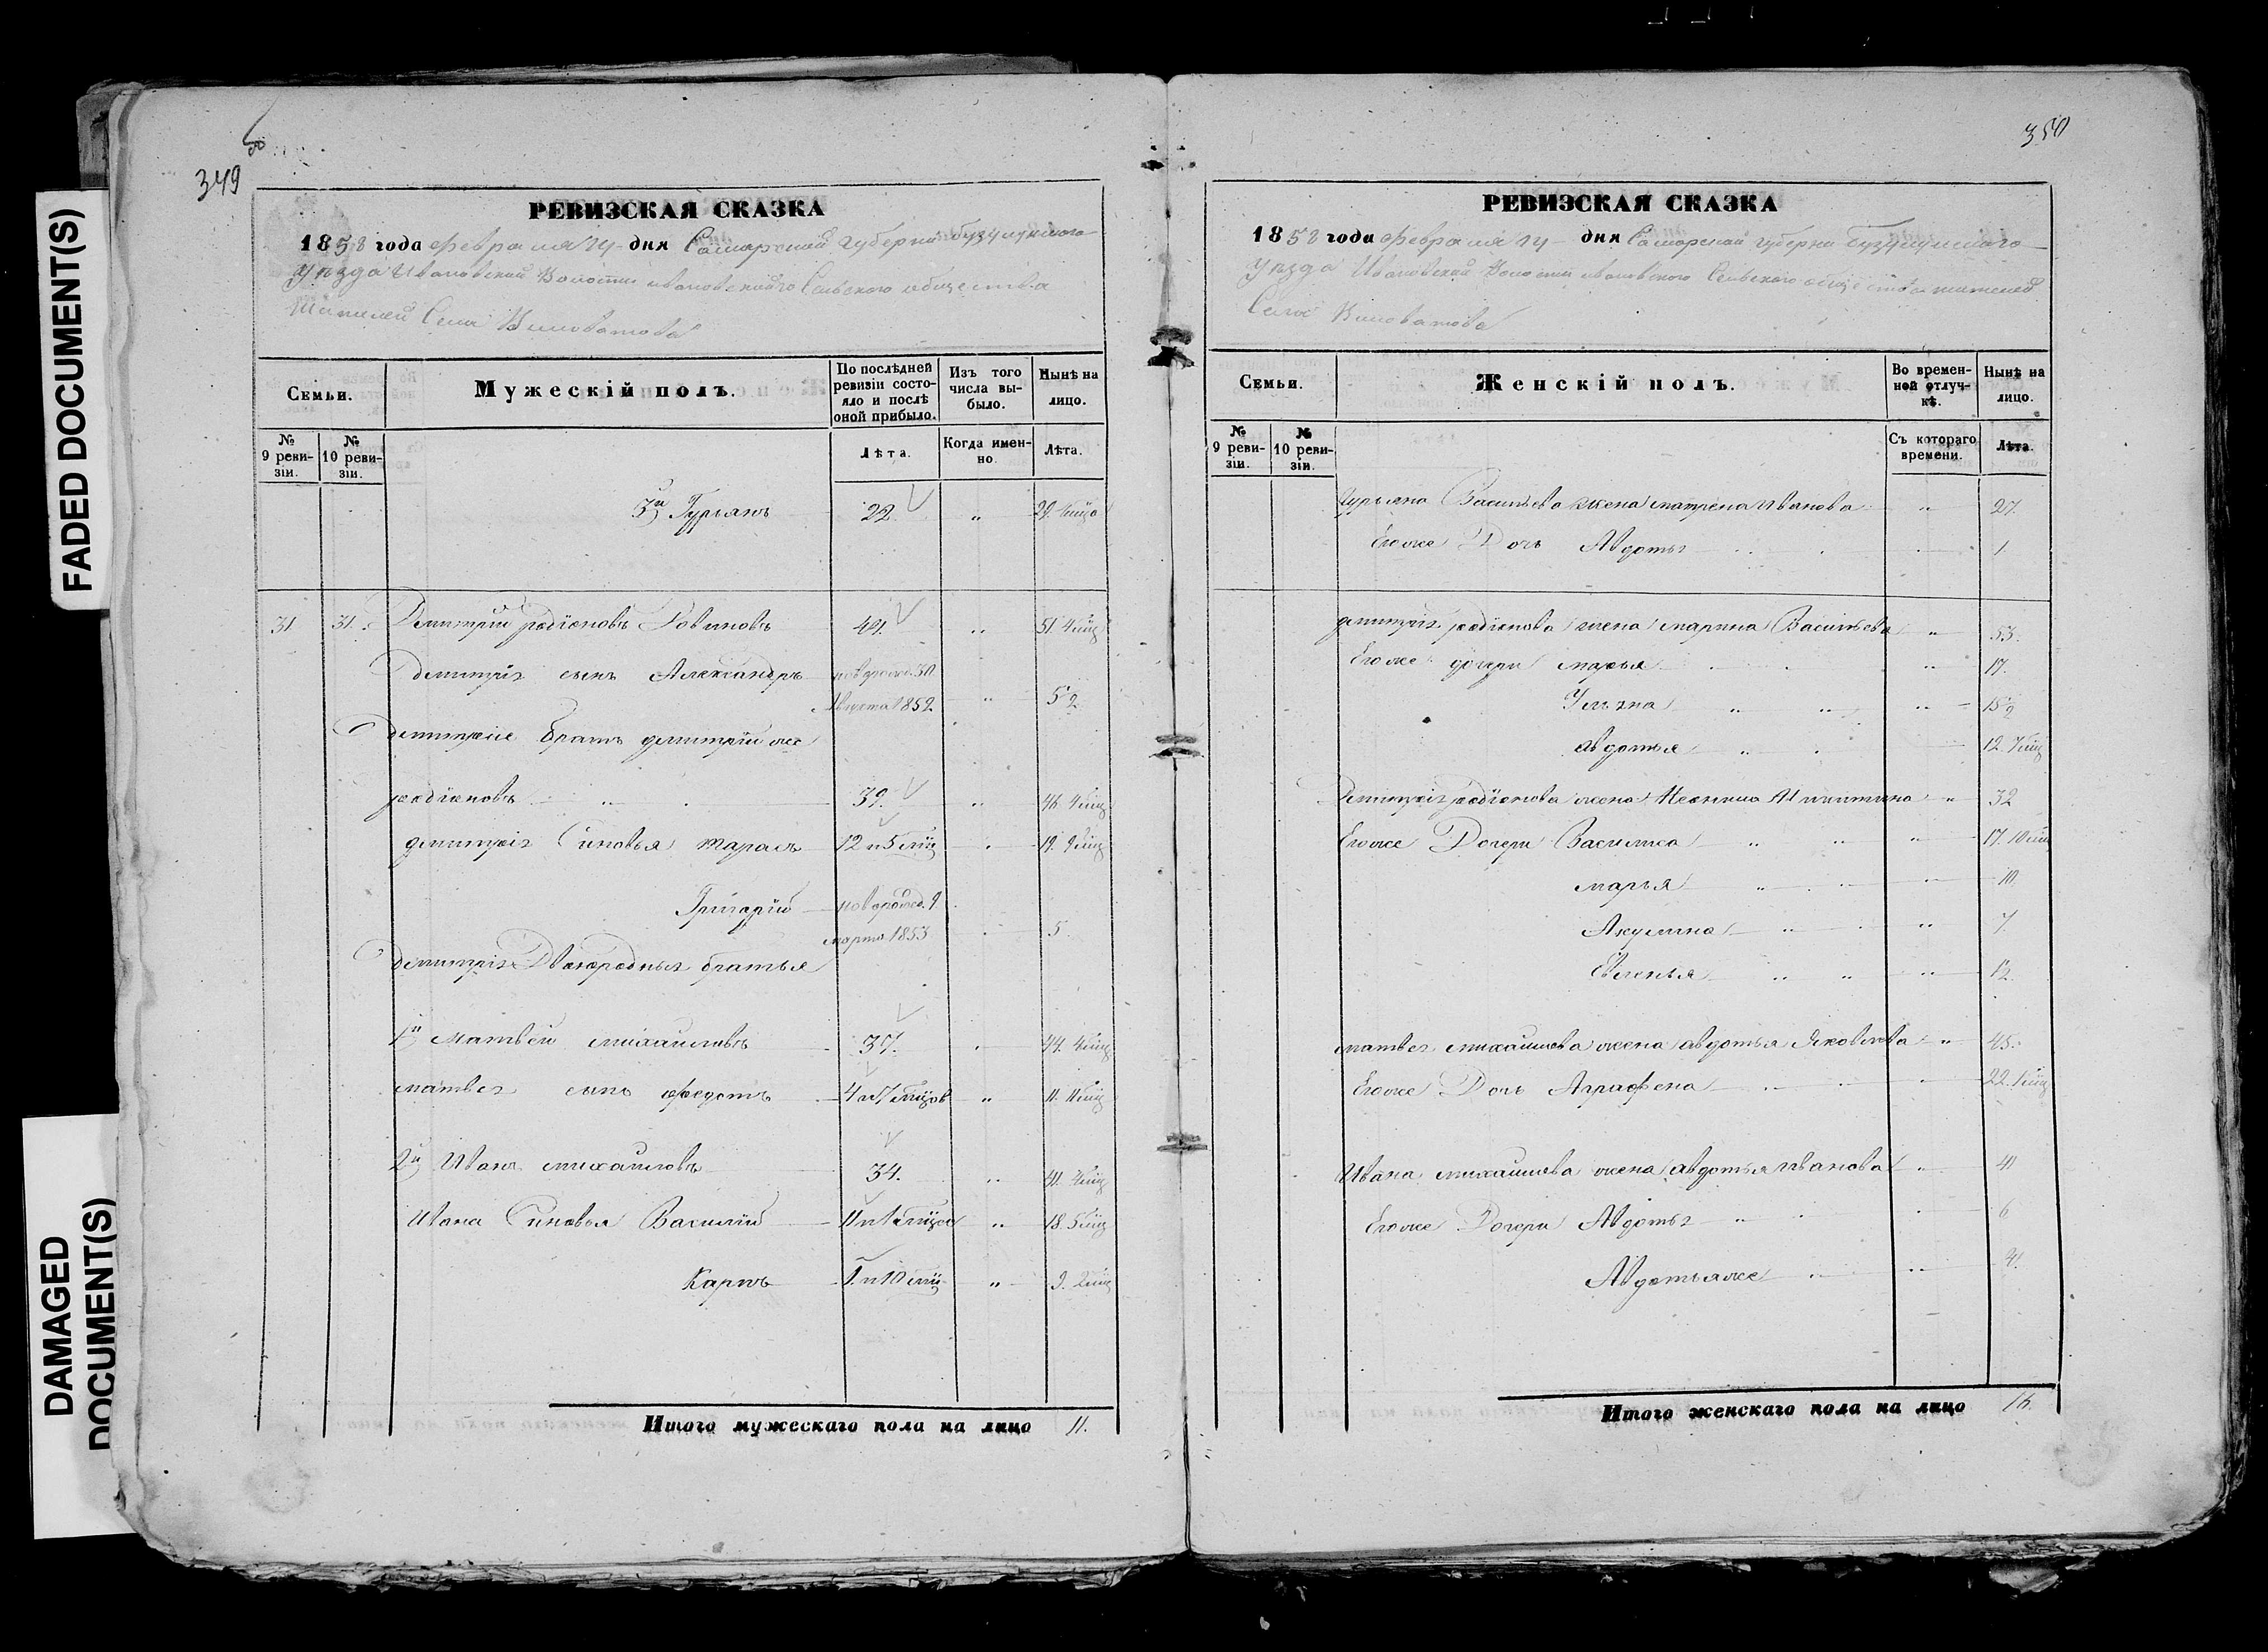 FADED DOCUMENT(S)
DAMAGED DOCUMENT(S)
349
РЕВИЗСКАЯ СКАЗКА
1858 года февраля 14 дня Самарской губерни бузулукского
уѣзда Ивановской Волости ивановскаго Сельского общества
Села
Семьи.
Мужескій полъ.
По послѣдней ревизіи состояло и послѣ оной прибыло.
Изъ того числа выбыло.
Нынѣ на лицо.
№ 9 ревизіи.
№ 10 ревизіи.
Лѣта.
Когда именно.
Лѣта.
3й Гурьянъ 22. „ 29.
31 31. Демитрий родiоновъ „ 51. 4
демитрiя сынъ Александръ новорожд. 30
Августа 1852 „ 5 1/2
демитрие братъ демитрий же
родiоновъ „ 39. „ 46. 4
демитрiя Синовья Тарасъ 12 и 5 19. 9
Григорий новорожд. 9
марта 1853 5
демитрiя Двоюродныя братья
1й Матвей михаиловъ 37. 44. 4
матвея сынъ федотъ 4 и 7 „ 11. 11
2й Иванъ михаиловъ 34. „ 41. 4
Ивана Синовья Василий 11 и 1 „ 18. 5
Карпъ 1 и 10 „ 9. 2
Итого мужескаго пола на лицо 11.
350
РЕВИЗСКАЯ СКАЗКА
1858 года февраля 14 дня Самарской губерни бузулукского
уѣзда Ивановской Волости ивановского Сельского общества жителей
Села
Семьи.
Женскій полъ.
Во временной отлучкѣ.
Нынѣ на лицо.
№ 9 ревизіи.
№ 10 ревизіи.
Съ котораго времени.
Лѣта.
Гурьяна Васильева жена матрена Иванова „ 27.
Егоже Дочь Авдотья 1
демитрiя родiонова жена марина Васильева „ 53.
Егоже дочери марья „ 17.
Ульяна „ „ „ 15 1/2
авдотья „ 12. 7
Демитрiя родiонова жена Никитина „ 32
Егоже Дочери Василиса „ „ „ 17. 10
марья „ „ „ 10.
Акулина „ „ 7
Евгенья „ „ „ 1 1/2
матвея михаилова жена авдотья Яковлева „ 45.
Егоже Дочь Аграфена „ 22. 1
Ивана михаилова жена авдотья Иванова „ 40
Егоже Дочери Авдотья „ 6
Авдотьяже „ „ 4.
Итого женскаго пола на лицо 16.